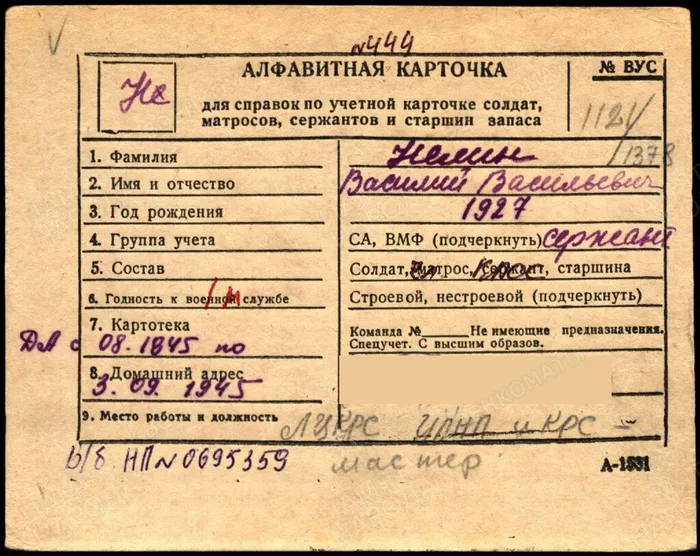 №444
АЛФАВИТНАЯ КАРТОЧКА
№ ВУС
Не
для справок по учетной карточке солдат,
матросов, сержантов и старшин запаса
112
/1378
1. Фамилия Нелин
2. Имя и отчество Василий Васильевич
3. Год рождения 1927
4. Группа учета СА, ВМФ (подчеркнуть) сержант
5. Состав Солдат, матрос, сержант, старшина
6. Годность к военной службе Строевой, нестроевой (подчеркнуть)
7. Картотека Команда № Не имеющие предназначения.
Спецучет. С высшим образов.
ДА с 08.1945 по
8. Домашний адрес
3.09.1945
9. Место работы и должность ЛЦКРС и КРС –
в/б НП№0695359 мастер А-1531